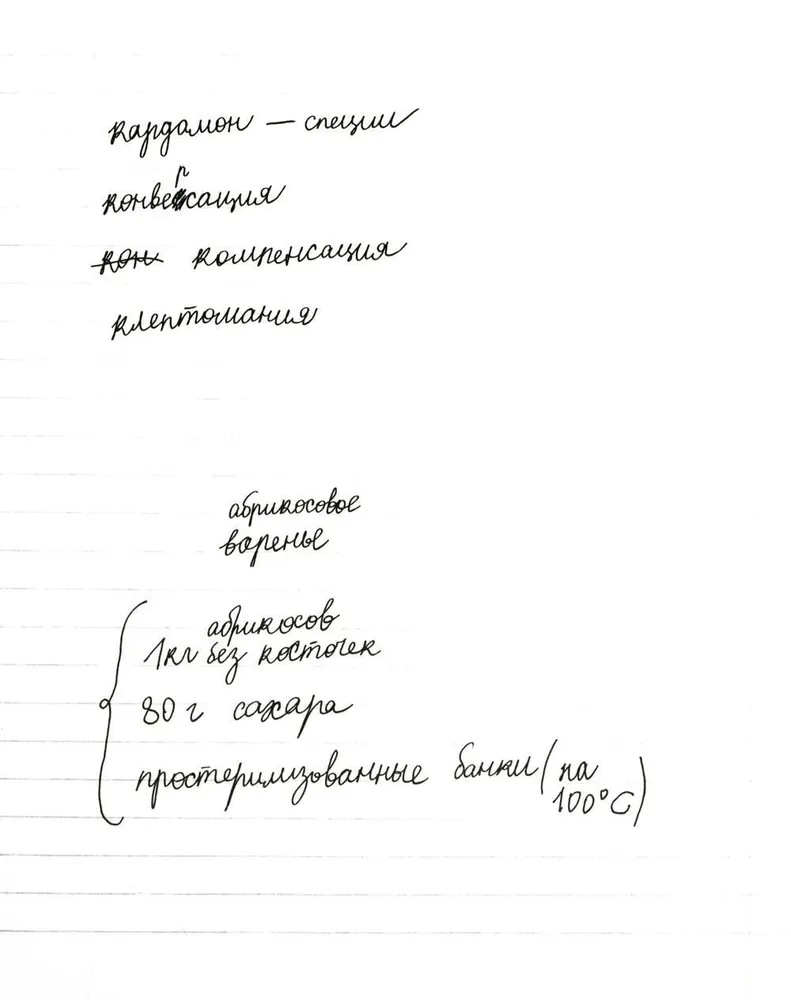 кардамон — специи
конверсация
кон компенсация
клептомания
абрикосовое
варенье
абрикосов
1кг без косточек
80 г сахара
простерилизованные банки (на
100°С)